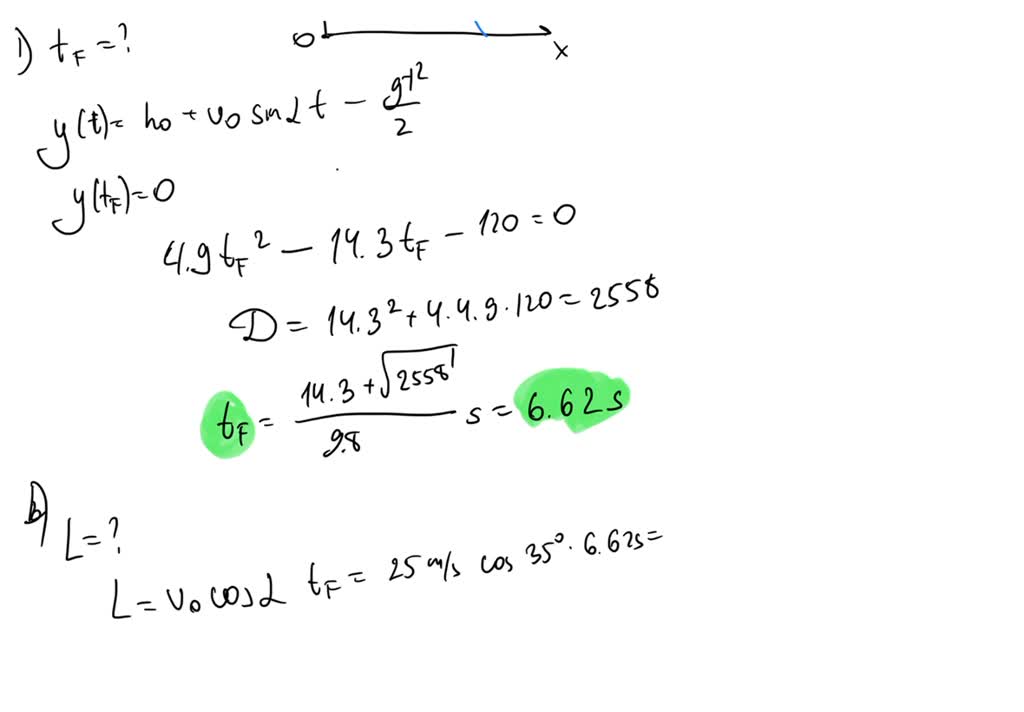 1) t_F = ?
0 x
y(t) = h₀ + v₀ sin α t − gt²/2
y(t_F) = 0
4.9 t_F² − 14.3 t_F − 120 = 0
D = 14.3² + 4·4.9·120 = 2558
t_F = (14.3 + √2558)/9.8 s = 6.62 s
b) L = ?
L = v₀ cos α t_F = 25 m/s cos 35° · 6.62 s =